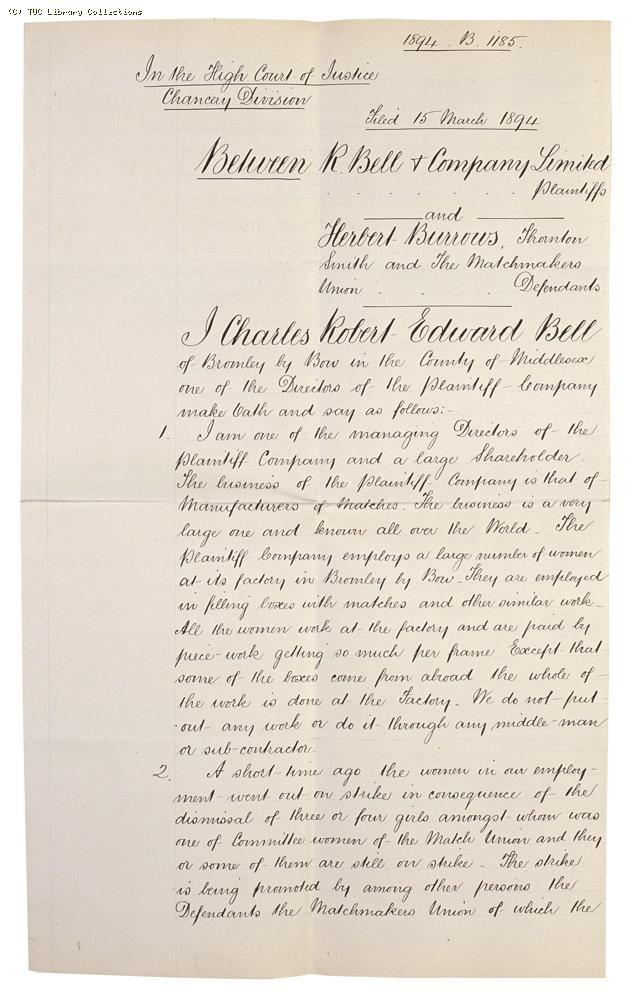 (C) TUC Library Collections
1894. B. 1185.
In the High Court of Justice
Chancery Division
Filed 15 March 1894
Between R. Bell & Company Limited
. . . . . . Plaintiffs
and
Herbert Burrows, Thornton
Smith and The Matchmakers
Union . . . . Defendants
I Charles Robert Edward Bell
of Bromley by Bow in the County of Middlesex
one of the Directors of the Plaintiff Company
make Oath and say as follows:-
1. I am one of the managing Directors of the
Plaintiff Company and a large Shareholder.
The business of the Plaintiff Company is that of
Manufacturers of Matches. The business is a very
large one and known all over the World. The
Plaintiff Company employs a large number of women
at its factory in Bromley by Bow. They are employed
in filling boxes with matches and other similar work.
All the women work at the factory and are paid by
piece-work getting so much per frame Except that
some of the boxes come from abroad the whole of
the work is done at the Factory. We do not put
out any work or do it through any middle-man
or sub-contractor.
2. A short time ago the women in our employ-
ment went out on strike in consequence of the
dismissal of three or four girls amongst whom was
one of Committee women of the Match Union and they
or some of them are still on strike. The strike
is being promoted by among other persons the
Defendants the Matchmakers Union of which the